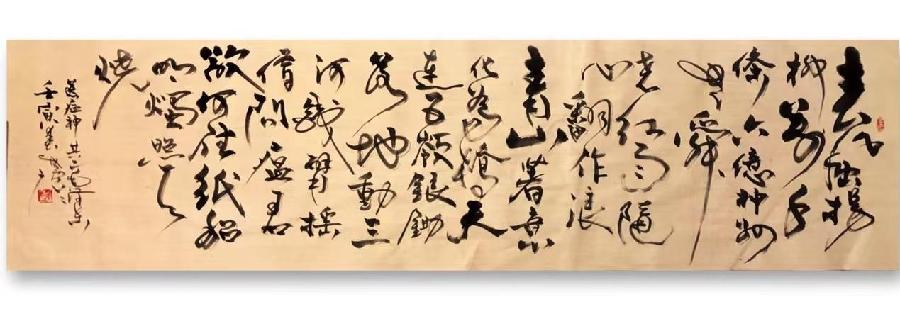 春風楊
柳萬千
條六億神州
尽舜
尧紅雨隨
心翻作浪
青山著意
化為橋天
連五嶺銀鋤
落地動三
河鐵臂摇
借問瘟君
欲何往紙船
明燭照天
燒
送瘟神 其二
壬寅